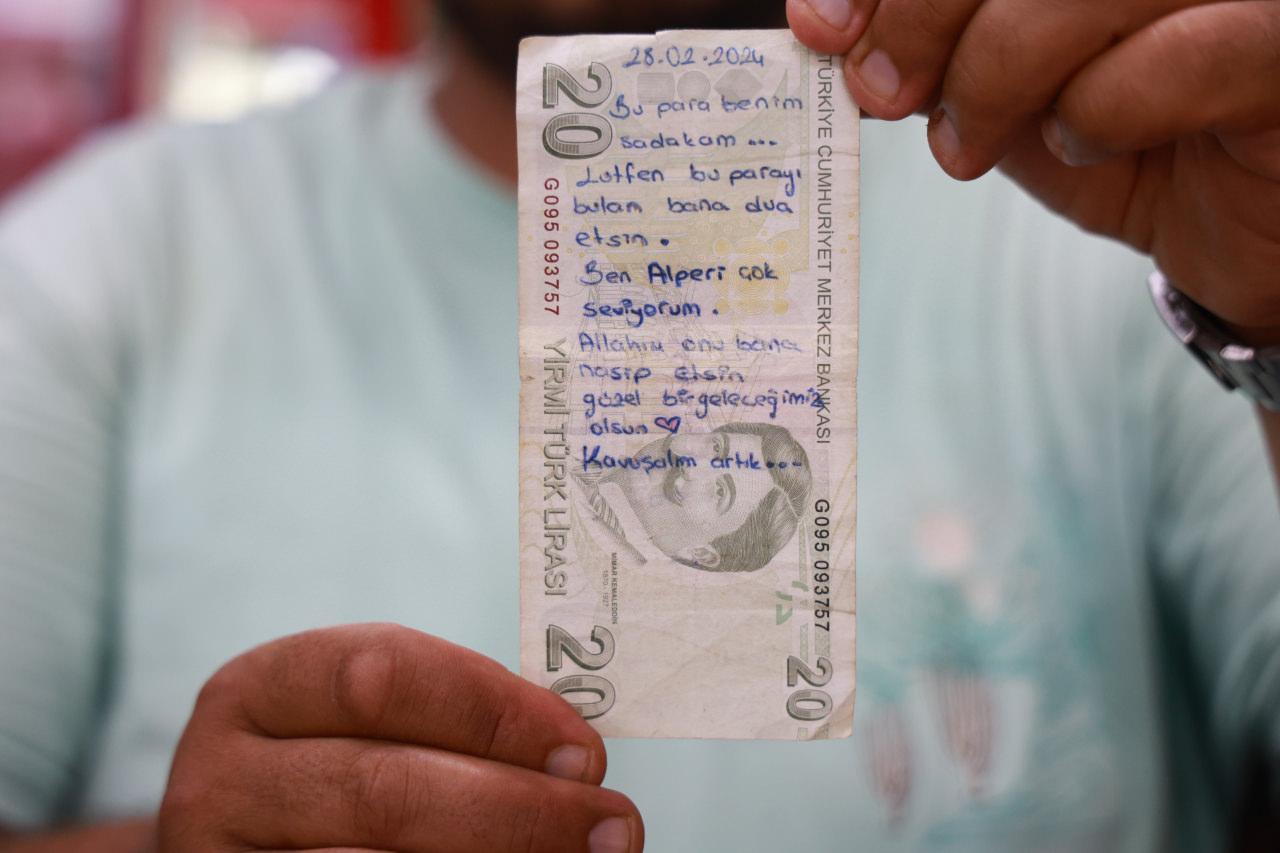 28.02.2024
Bu para benim
sadakam ...
Lutfen bu parayı
bulam bana dua
etsin .
Ben Alperi çok
seviyorum .
Allahım onu bana
nasip etsin
güzel bir geleceğimiz
olsun ♡
Kavuşalım artık...
20
G095 093757
YİRMİ TÜRK LİRASI
20
TÜRKİYE CUMHURİYET MERKEZ BANKASI
G095 093757
20
MİMAR KEMALEDDİN
1870 - 1927